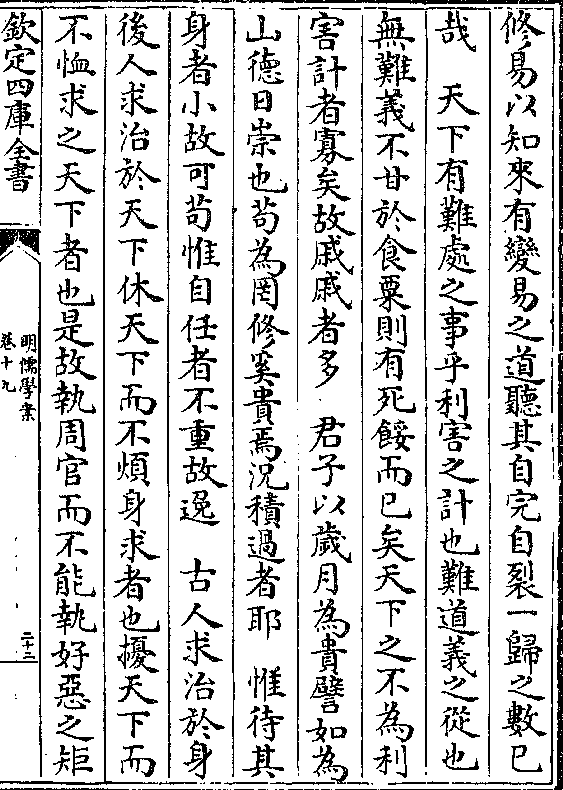 修易以知來有變易之道聽其自完自裂一歸之數已
哉　天下有難處之事乎利害之計也難道義之從也
無難義不甘於食粟則有死餒而已矣天下之不為利
害計者寡矣故戚戚者多　君子以歲月為貴譬如為
山德日崇也苟為罔修奚貴焉況積過者耶　惟待其
身者小故可苟惟自任者不重故逸　古人求治於身
後人求治於天下休天下而不煩身求者也擾天下而
不恤求之天下者也是故執周官而不能執好惡之矩
欽定四庫全書
明儒學案
卷十九
二十二